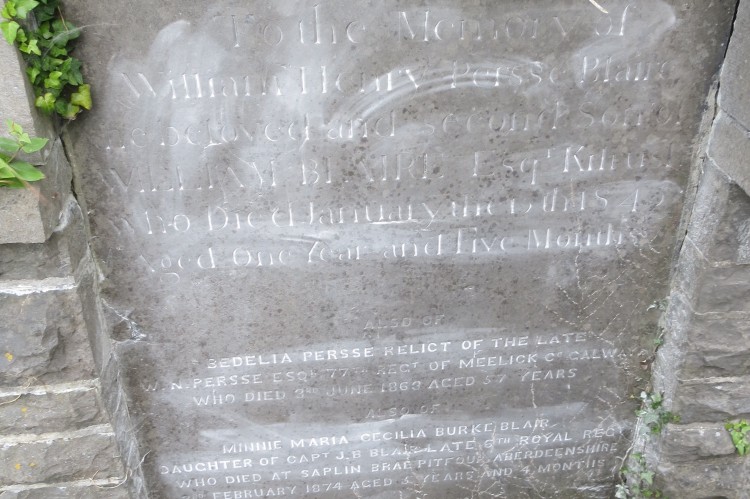 To the Memory of
William Henry Persse Blaire
beloved and second Son of
WILLIAM BLAIRE Esqr
Who Died January the
Aged One Year and Five Months
ALSO OF
BEDELIA PERSSE RELICT OF THE LATE
W. N. PERSSE ESQR 77TH REGT OF MEELICK CO GALWAY
WHO DIED 3RD JUNE 1863 AGED 57 YEARS
ALSO OF
MINNIE MARIA CECILIA BURKE BLAIR
DAUGHTER OF CAPT J.B BLAIR LATE 6TH ROYAL REGT
WHO DIED AT SAPLIN BRAE PITFOUR ABERDEENSHIRE
FEBRUARY 1874 AGED YEARS AND 4 MONTHS